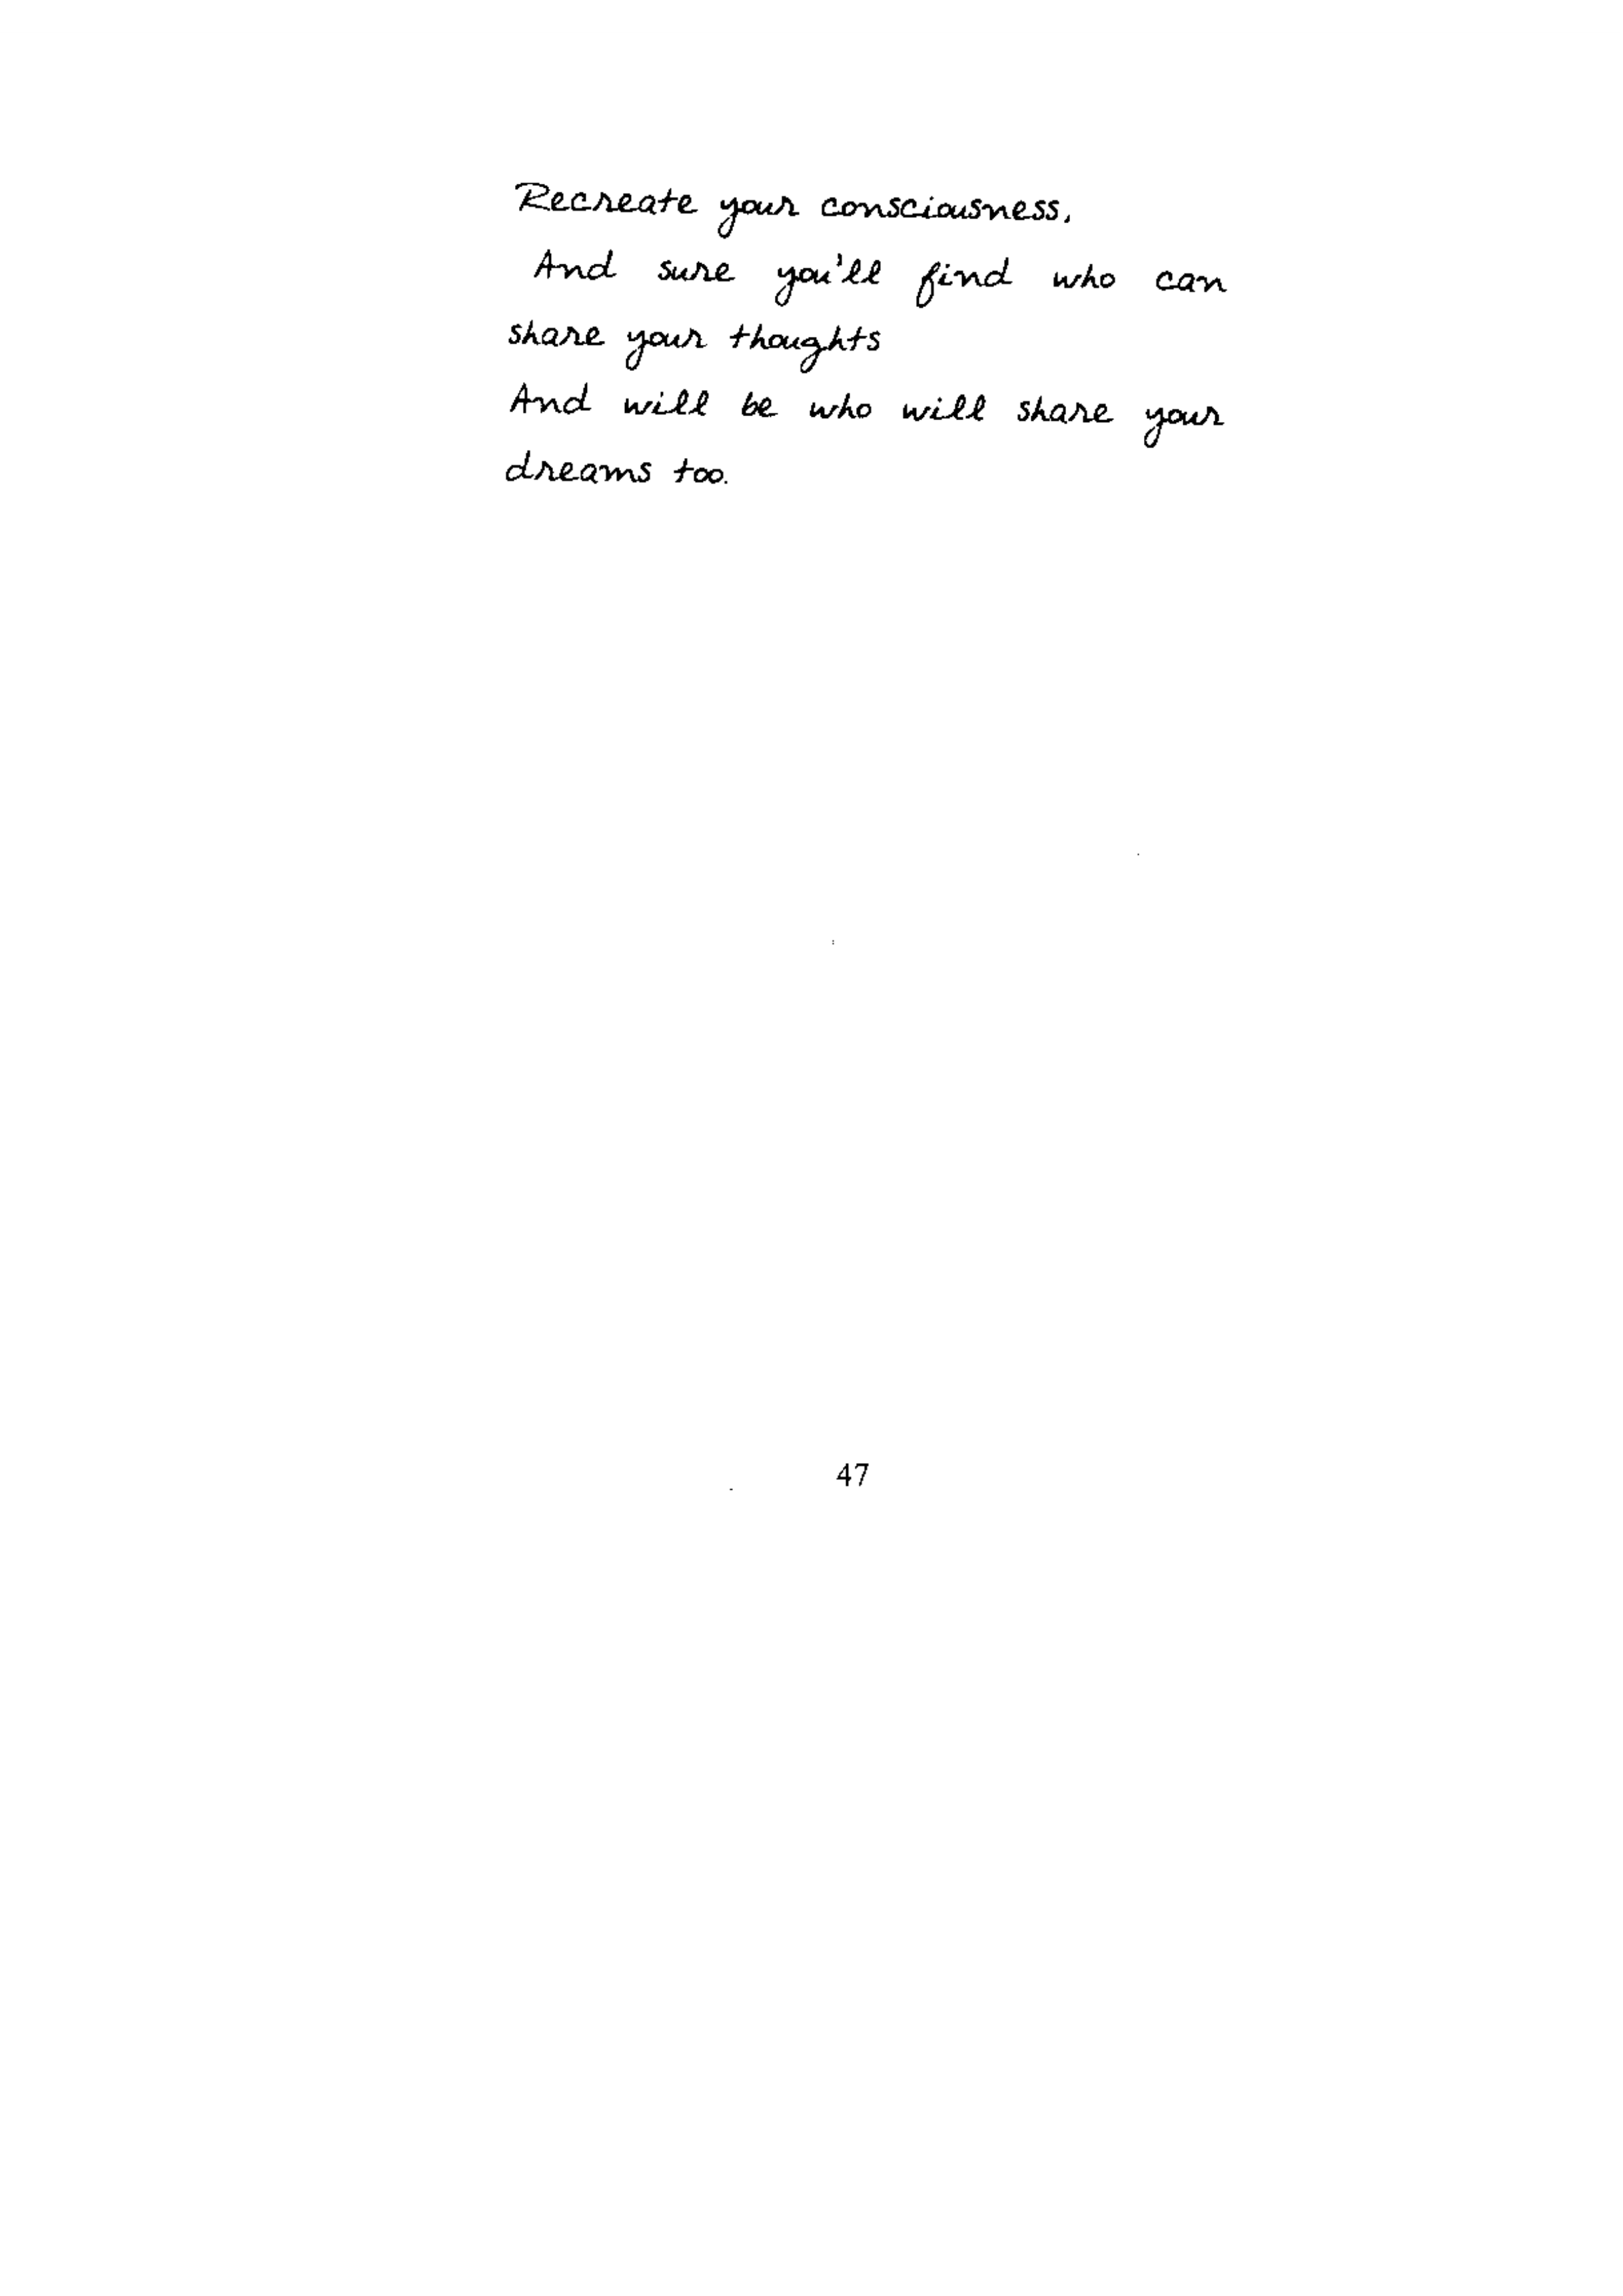 Recreate your consciousness,
And sure you'll find who can
share your thoughts
And will be who will share your
dreams too.
47